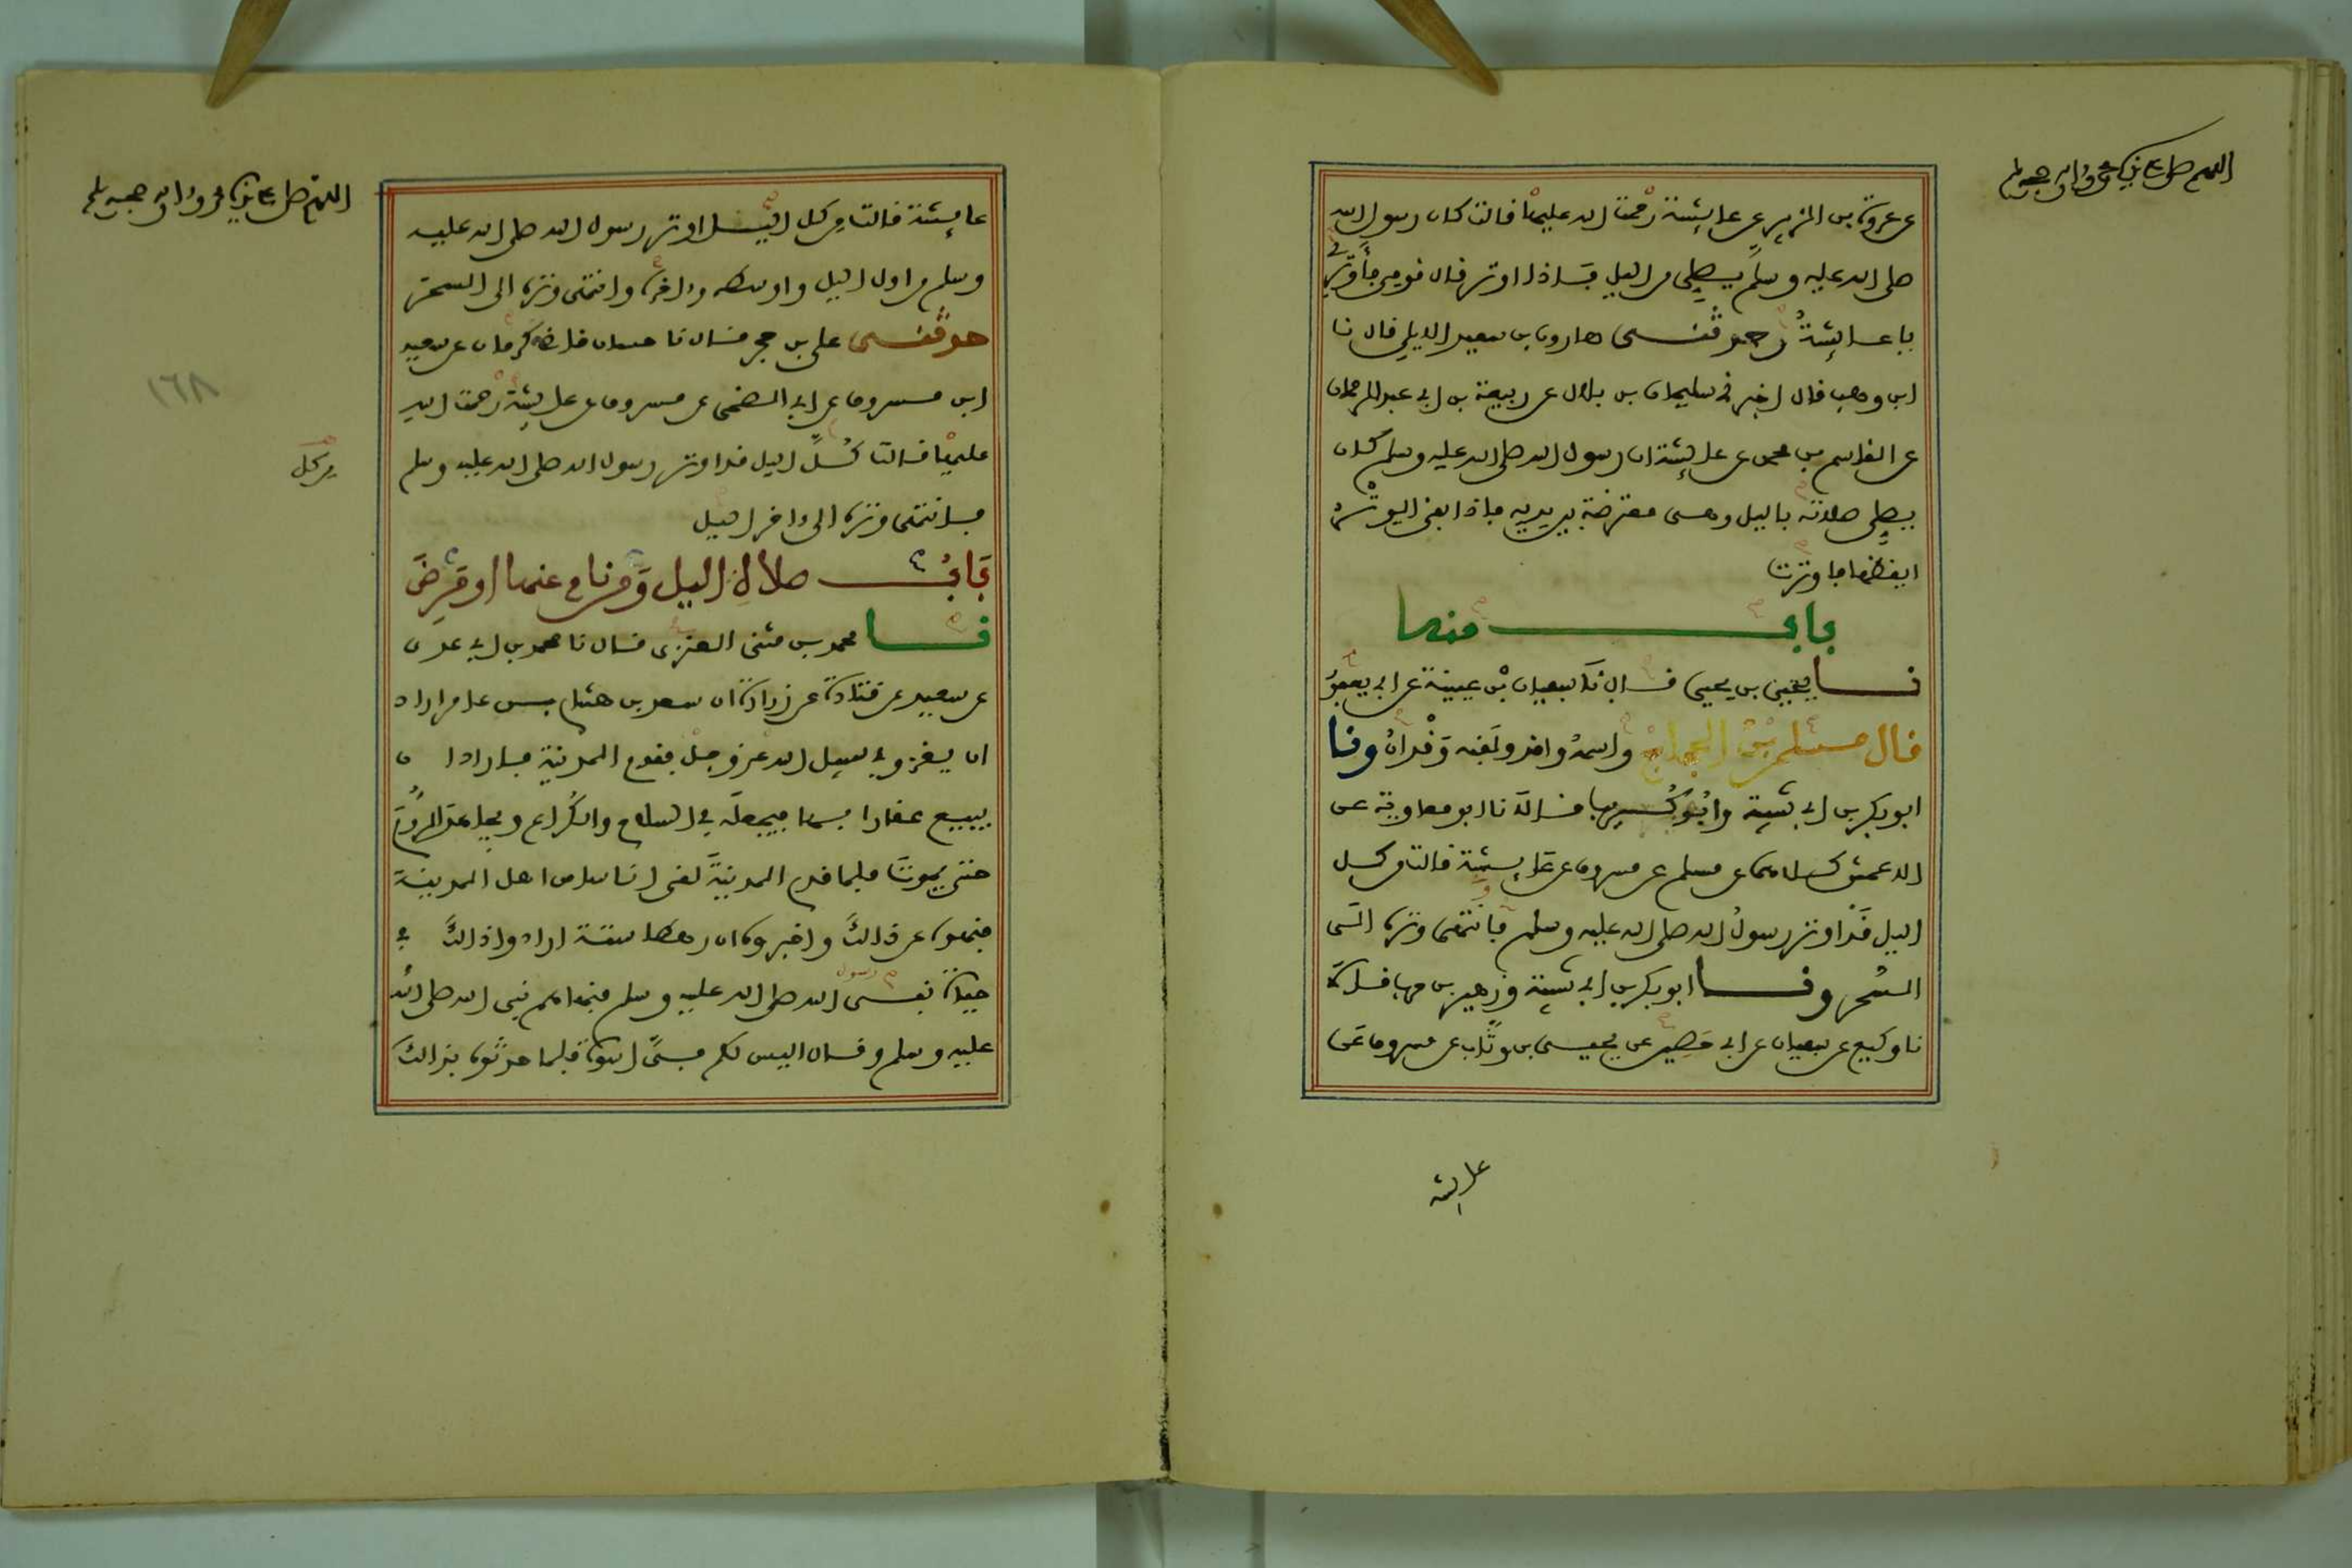 اللهم صل على نبيك محمد وءاله وصحبه وسلم
عن عروة بن الزبير عن عايشة رحمت الله عليها قالت كان رسول الله
صلى الله عليه وسلم يصلى من اليل فاذا اوتر قال قومى فأوترى
يا عايشة وحدثنى هارون بن سعيد الايلى قال نا
ابن وهب قال اخبرنى سليمان بن بلال عن ربيعة بن ابى عبد الرحمان
عن القاسم بن محمد عن عايشة ان رسول الله صلى الله عليه وسلم كان
يصلى صلاته باليل وهى معترضة بين يديه فاذا بقى الوتر
ايقظها فاوترت
باب منها
نا يحيى بن يحيى قال نا سفيان بن عيينة عن ابى يعفور
قال مسلم بن الحجاج واسمه واقد ولقبه وقدان ونا
ابو بكر بن ابى شيبة وابو كريب قالا نا ابو معاوية عن
الاعمش كلاهما عن مسلم عن مسروق عن عايشة قالت من كل
اليل قد اوتر رسول الله صلى الله عليه وسلم فانتهى وتره الى
السحر ونا ابو بكر بن ابى شيبة وزهير بن حرب قالا
نا وكيع عن سفيان عن ابى حصين عن يحيى بن وثاب عن مسروق عن
عايشة
اللهم صل على نبيك محمد وءاله وصحبه وسلم
عايشة قالت من كل اليل اوتر رسول الله صلى الله عليه
وسلم من اول اليل واوسطه وءاخره وانتهى وتره الى السحر
حدثنى على بن حجر قال نا حسان قاضى كرمان عن سعيد
ابن مسروق عن ابى الضحى عن مسروق عن عايشة رحمت الله
عليها قالت كل اليل قد اوتر رسول الله صلى الله عليه وسلم
من كل
فانتهى وتره الى ءاخر اليل
باب صلاة اليل ومن نام عنها او مرض
نا محمد بن مثنى العنزى قال نا محمد بن ابى عدى
عن سعيد عن قتادة عن زرارة ان سعد بن هشام بن عامر اراد
ان يغزو فى سبيل الله عز وجل فقدم المدينة فاراد ان
يبيع عقارا بها فيجعله فى السلاح والكراع ويجاهد الروم
حتى يموت فلما قدم المدينة لقى اناسا من اهل المدينة
فنهوه عن ذالك واخبروه ان رهطا ستة ارادوا ذالك فى
حياة نبى الله صلى الله عليه وسلم فنهاهم نبى الله صلى الله
رسول
عليه وسلم وقال اليس لكم فى اسوة فلما حدثوه بذالك
١٦٨